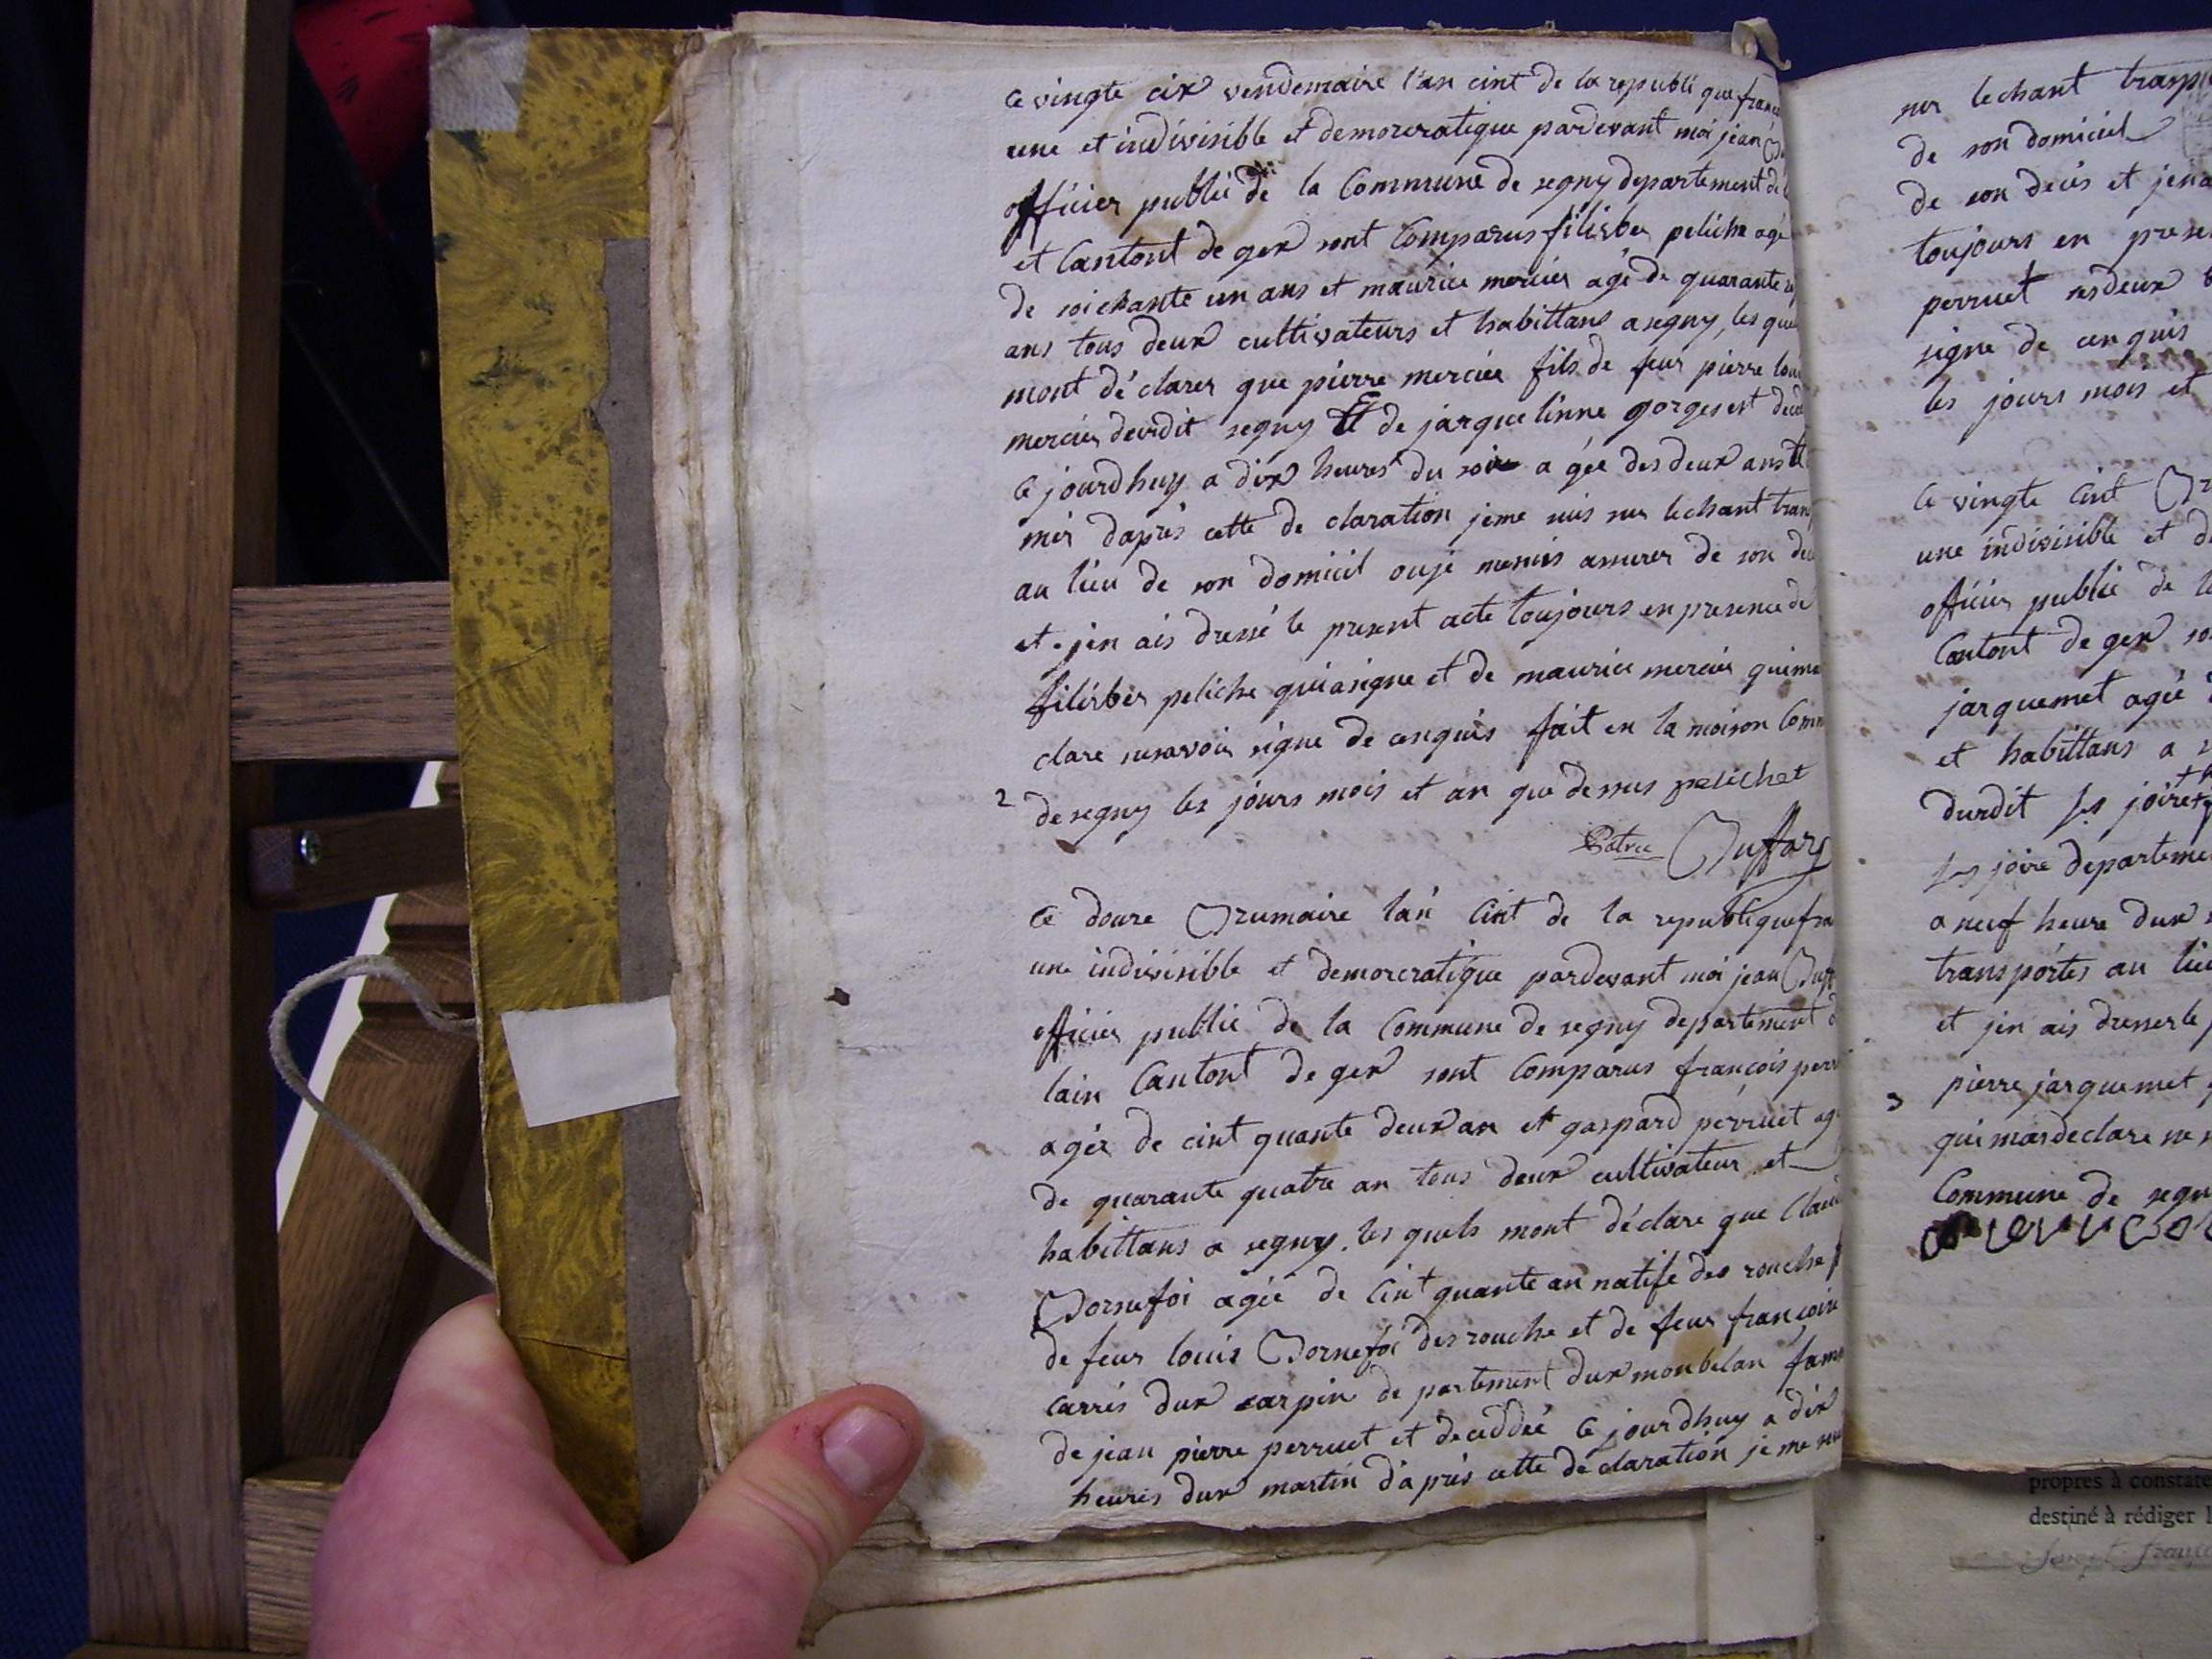 ce vingte cix vendemaire l'an cint de la republi que franc
une et indivisible et demorcratique pardevant moi jean
officier publie de la Commune de segny departement de
et Cantont de gex sont Comparus filisber peliche agé
de soichante un ans et maurice mercier agé de quarante
ans tous deux cultivateurs et habittans a segny, les que
mont dé clarer que pierre mercier fils de feur pierre loui
mercier deudit segny Et de jarque linne gorges est deced
ce jourdhuy a dix heures du soir a gée des deux ans
mis daprès cette de claration jeme suis sur lechant tran
au lieu de son domicil ouje mesuis assurer de son dec
et jen ais dressé le present acte toujours en presence de
filisber peliche quiasigne et de maurice mercier quima
clare nesavoir signe de cenquis fait en la moison Comm
2
de segny les jours mois et an que dessus pelichet
Duffors
ce douze Brumaire lan Cint de la republique fra
une indivisible et demorcratique pardevant moi jean Duff
officier publie de la Commune de segny departement d
lain Cantont de gex sont Comparus françois perr
agée de cint quante deux an et gaspard perruet ag
de quarante quatre an tous deux cultivateur et
habittans a segny, les quels mont déclare que Clau
Bornefoi agée de Cint quante an natife des rouche
de feur louis Bornefoi des rouche et de feur françoise
carrés dux sarpin de partement dux monbelan fam
de jean pierre perruet et deceddée ce jourdhuy a dix
heures dux martin d'après cette déclaration je me sui
sur lechant transp
de son domiciel
de son decés et jena
toujours en prese
perruet ses deux
signe de cenquis
les jours mois et
ce vingte Cint
une indivisible et d
officier publie de l
Cantont de gex so
jarquemet agée
et habittans a s
durdit
joire departeme
a neuf heure dux
transportés au lieu
et jen ais dresserle
3
pierre jarquemet
qui masdeclare ne
Commune de segn
propres à constate
destiné à rédiger l